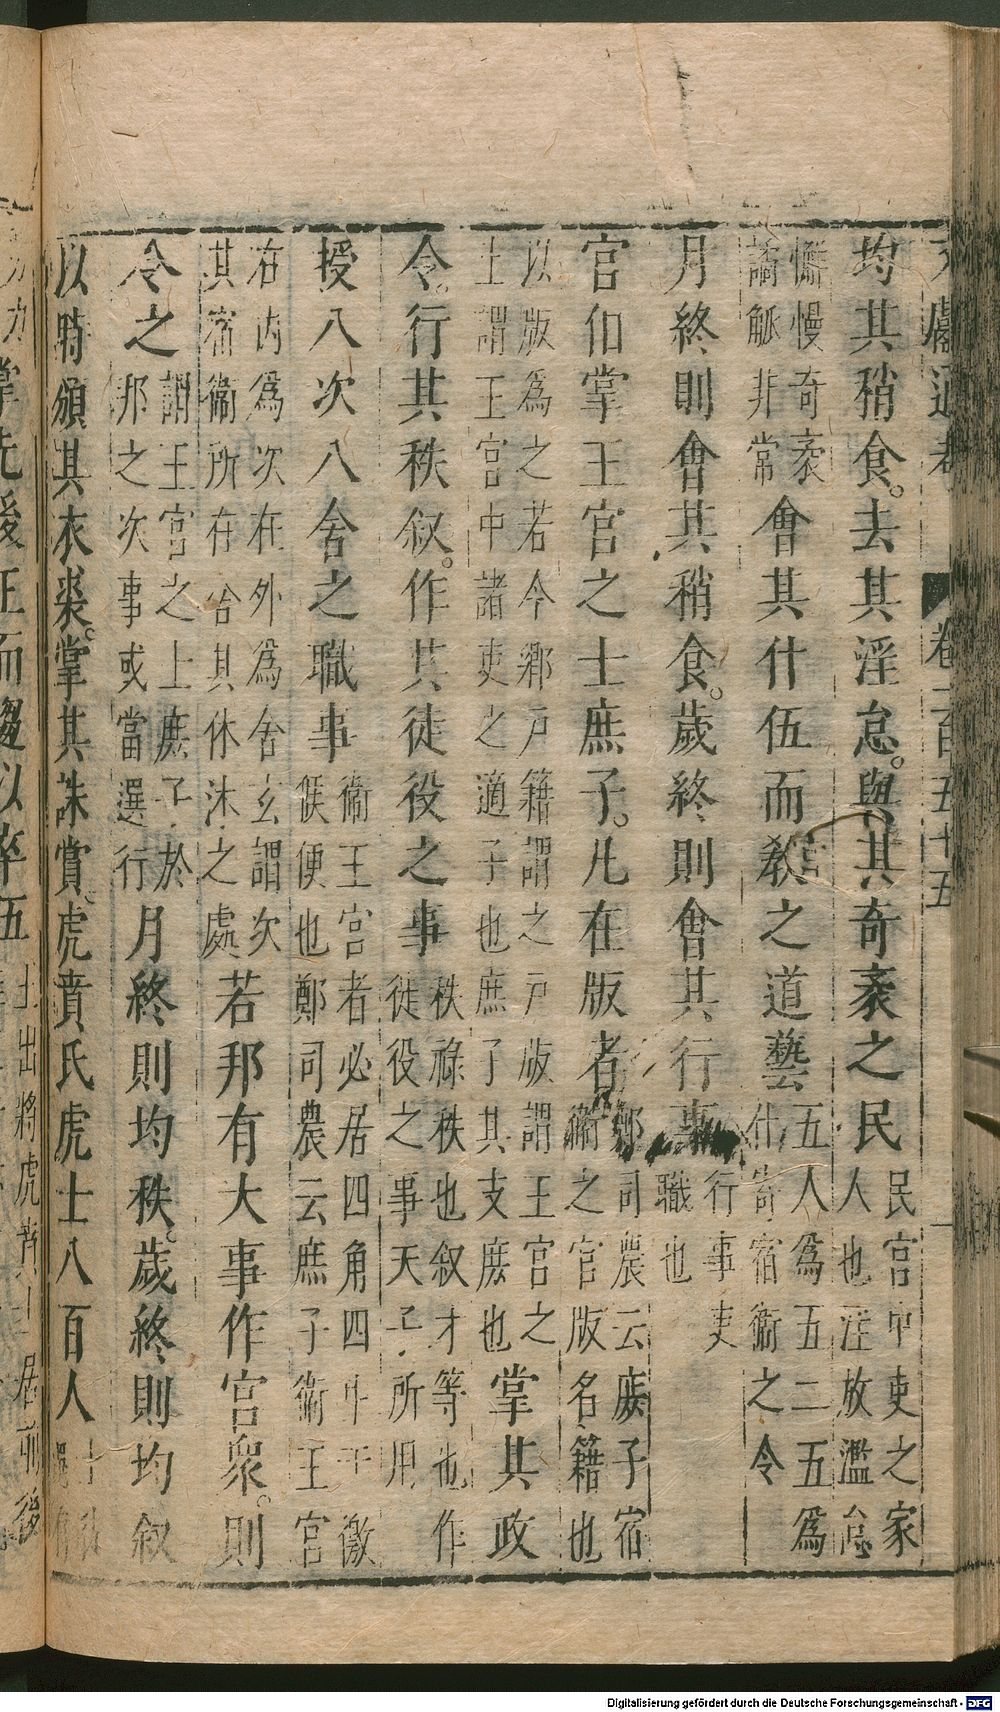 文獻通考　卷一百五十五
均其稍食。去其淫怠。與其奇衺之民民宮中吏之家
人也淫放濫怠
懈慢奇衺
譎觚非常會其什伍而教之道藝五人爲五二五爲
什寄宿衛之令
月終則會其稍食。歲終則會其行事行事吏
職也
官伯掌王宮之士庶子。凡在版者鄭司農云庶子宿
衛之官版名籍也
以版爲之若今鄉戸籍謂之戸版謂王宮之
士謂王宮中諸吏之適子也庶子其支庶也掌其政
令。行其秩叙。作其徒役之事秩祿秩也叙才等也作
徒役之事天子所用
授八次八舍之職事衛王宮者必居四角四中于徼
候便也鄭司農云庶子衛王宮
在内爲次在外爲舍玄謂次
其宿衛所在舍其休沐之處若邦有大事作宮衆。則
令之謂王宮之士庶子於
邦之次事或當選行月終則均秩。歲終則均叙
以時頒其衣裘。掌其誅賞。虎賁氏虎士八百人
掌先後王而趨以卒伍
士出將虎賁士居前後
Digitalisierung gefördert durch die Deutsche Forschungsgemeinschaft - DFG